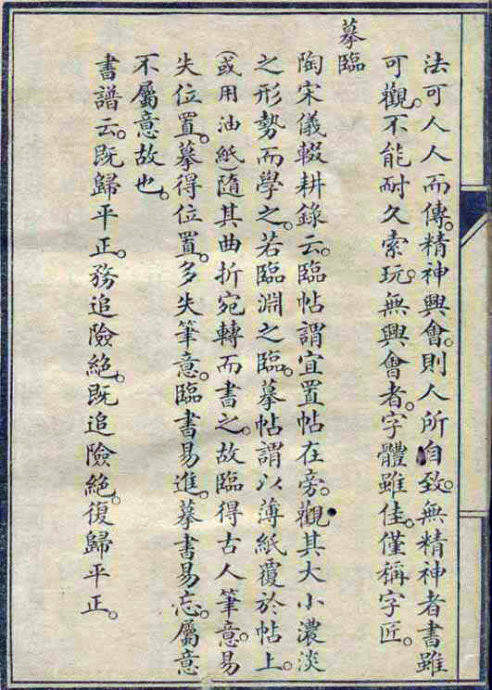 法可人人而傳。精神興會。則人所自致。無精神者書雖
可觀。不能耐久索玩。無興會者。字體雖佳。僅稱字匠。
摹臨
陶宋儀輟耕錄云。臨帖謂宜置帖在旁。觀其大小濃淡
之形勢而學之。若臨淵之臨。摹帖謂以薄紙覆於帖上。
(或用油紙隨其曲折宛轉而書之。故臨得古人筆意。易
失位置。摹得位置。多失筆意。臨書易進。摹書易忘。屬意
不屬意故也。
書譜云。既歸平正。務追險絕。既追險絕。復歸平正。